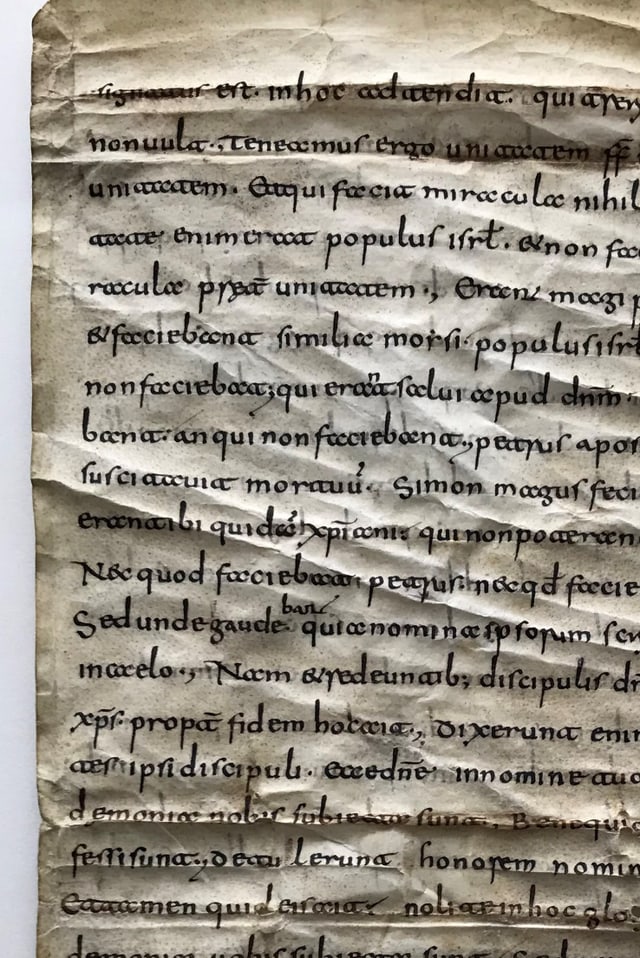 est. inhoc adtendit. qui
non uult·; Teneamus ergo unitatem f̄f̄
unitatem. Et qui facit miracula nihil
tate enim erat populus isrł. & non fac
racula p̄t unitatem·, Erant magi p
& faciebant similia moysi· populus isrł
non faciebat; qui eranт salui apud dnm̄·
bant· an qui non faciebant·, petrus apos
suscitauit mortuū· Simon magus feci
erant ibi quidā xp̄iani· qui non poteran
Nec quod faciebat petrus· nec qd̄ facie
Sed unde gaudebant quia nomina ipsorum scr
in caelo·, Nam & redeuntib; discipulis dn̄
xp̄s· propt̄ fidem hoc ait·, Dixerunt enim
tes ipsi discipuli· ecce dn̄e· in nomine tuo
demonia nobis subiecta sunt, Bene qui
fessi sunt·, detulerunt honorem nomin
Et tamen quid eis ait· nolite in hoc glo
demonia uobis subiecta sunt